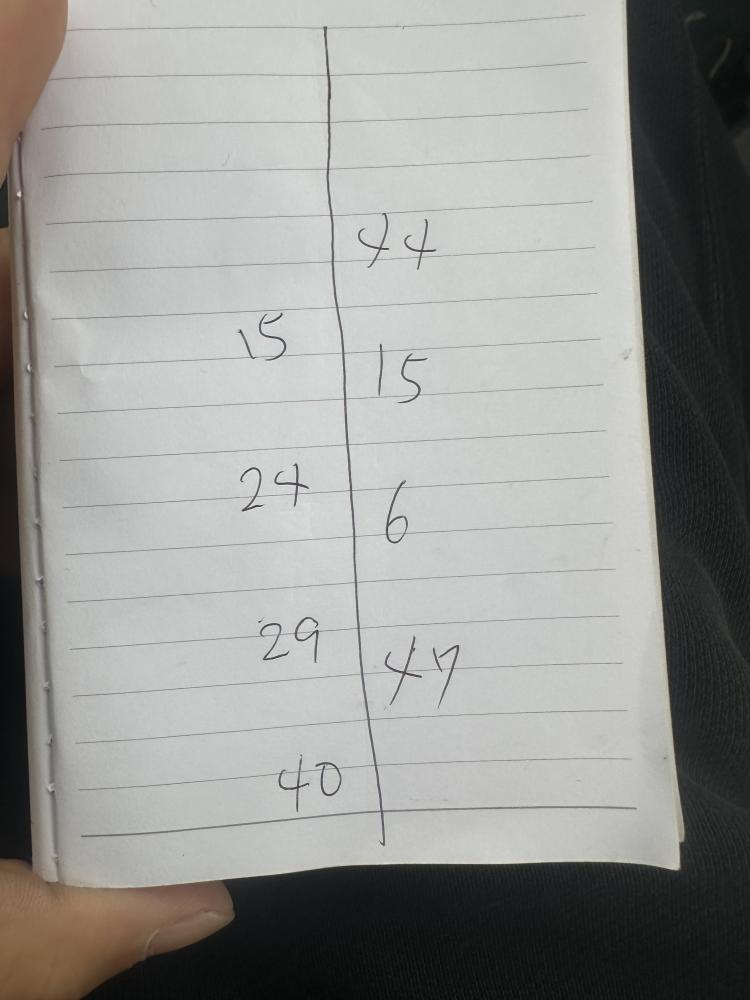 44
15
15
24
6
29
47
40